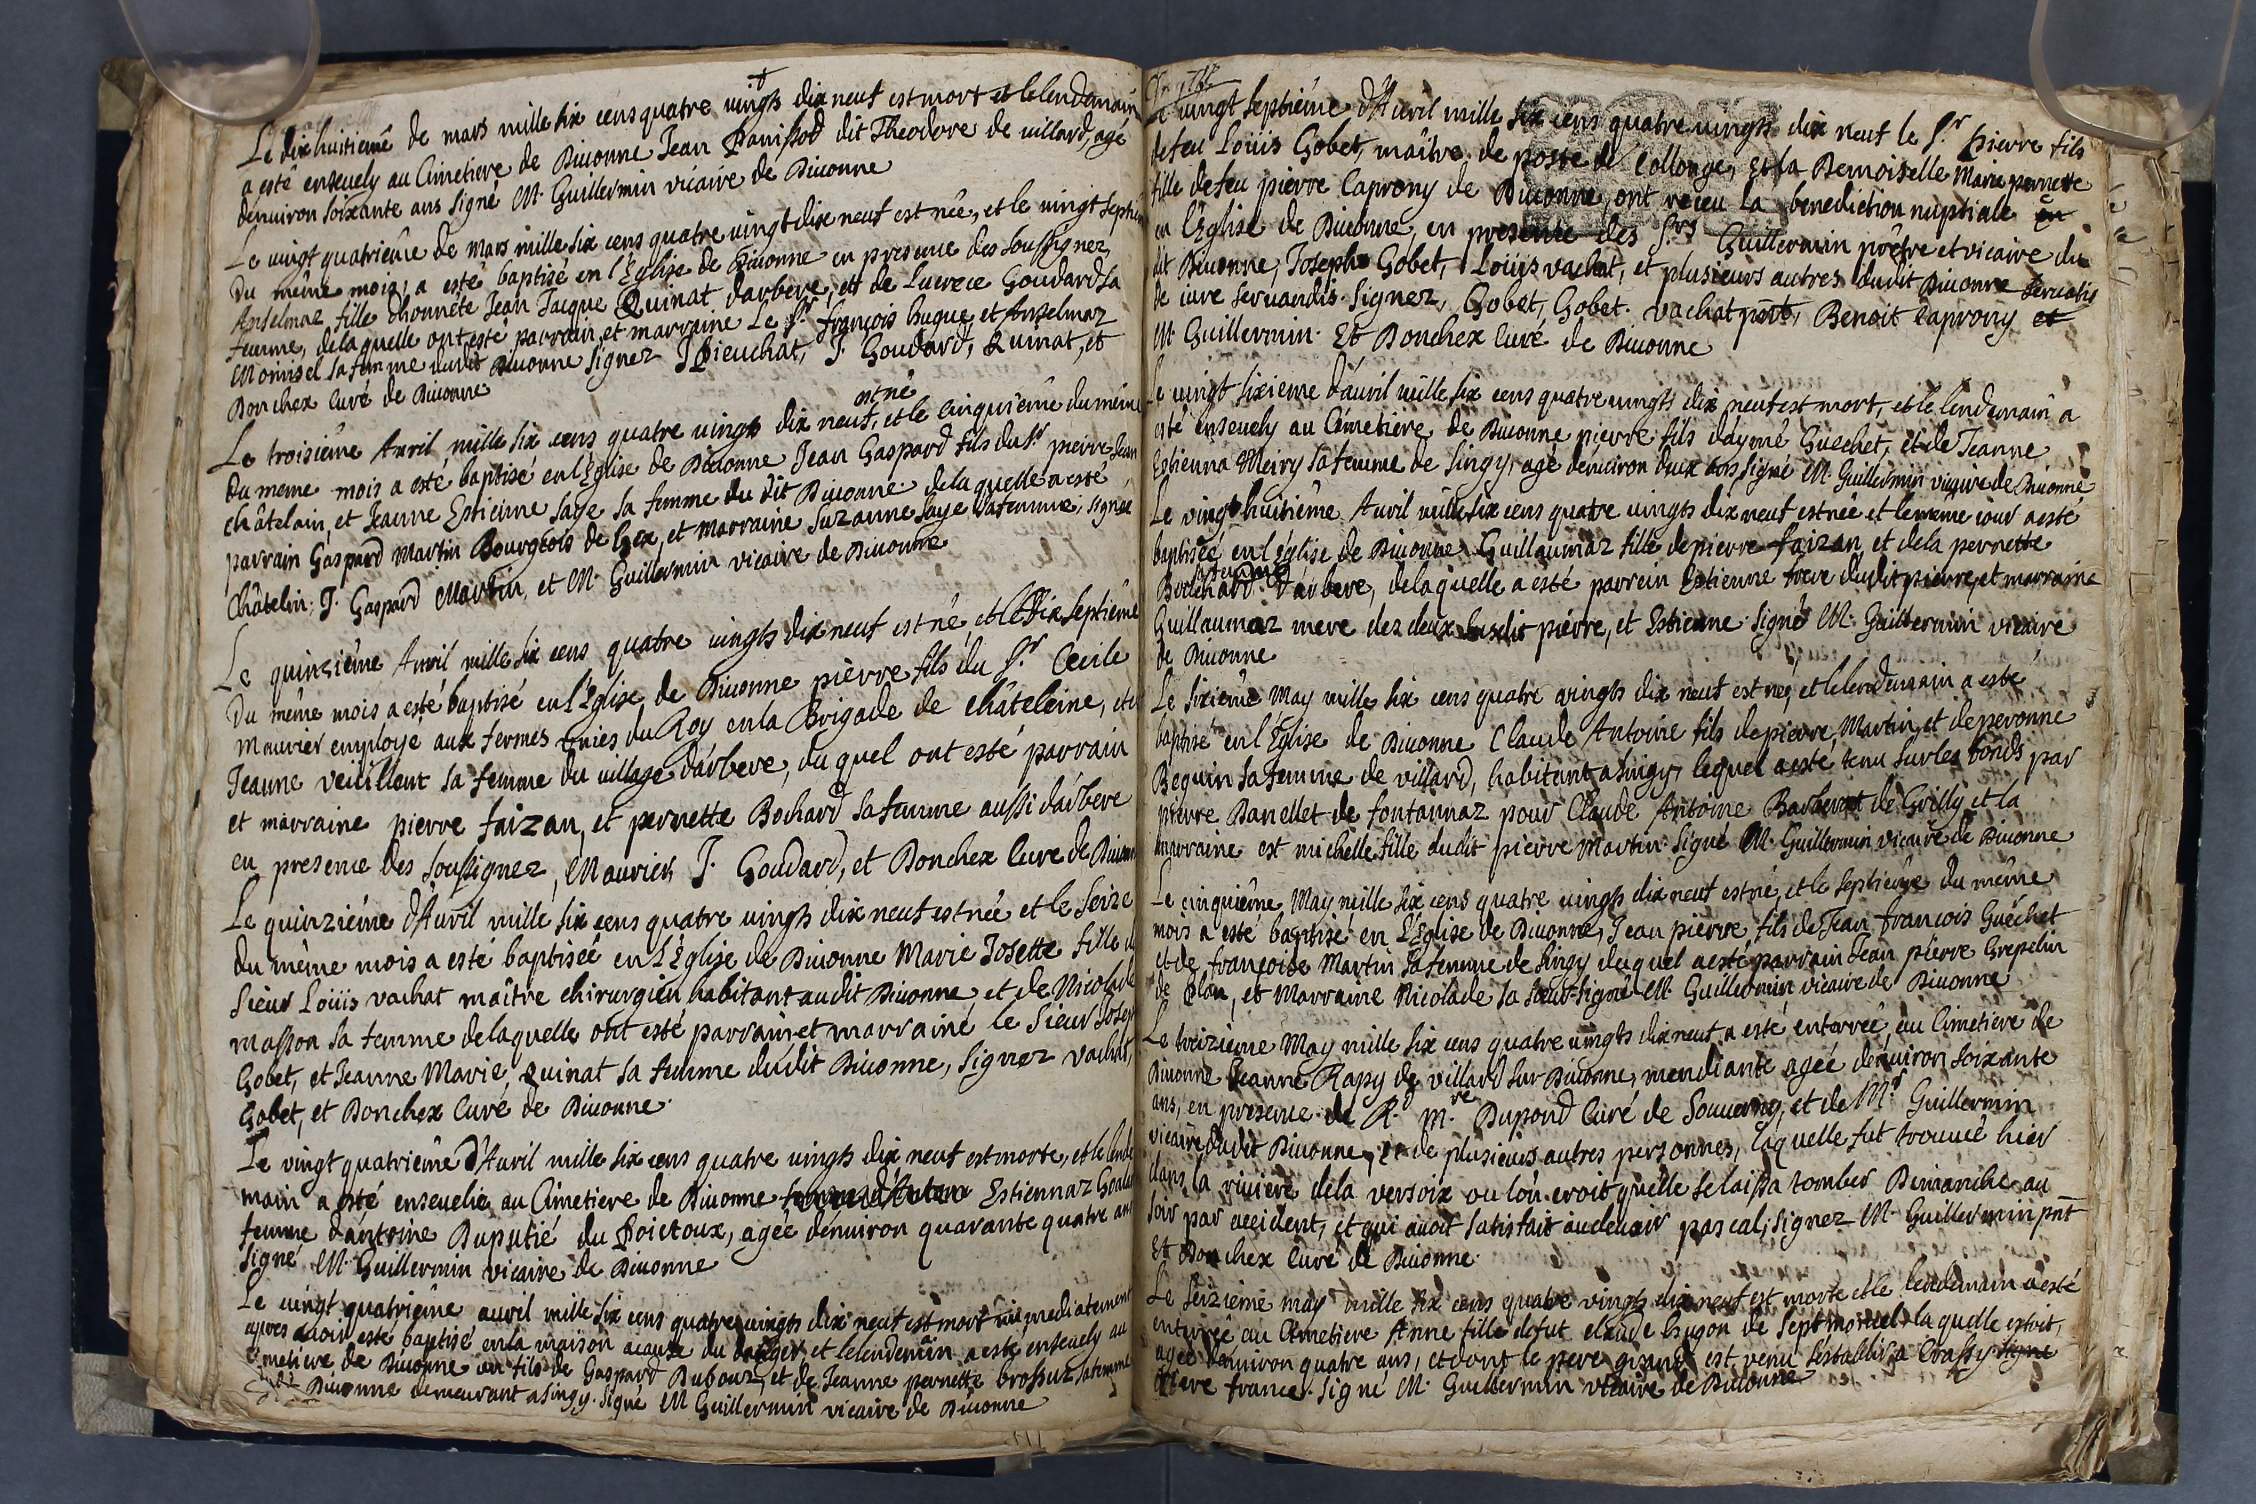 Le dix huitieme de mars mille six cens quatre vingts dix neuf est mort et le lendemain
a esté ensevely au Cimetiere de Divonne Jean Panissod dit Theodore de villard, agé
denviron soixante ans signé M. Guillermin vicaire de Divonne
Le vingt quatrieme de mars mille six cens quatre vingt dix neuf est née, et le vingt septie
du même mois, a esté baptisé en l'Eglise de Divonne en presence des soussignez
Anselmaz fille d'honnete Jean Jacque Quinat darbere, et de Lucrece Goudard sa
femme, de la quelle ont esté parrain et marraine Le Sr. françois huque et Anselmaz
Monnisel sa femme dudit Divonne signez J Pieuchat, J. Goudard, Quinat, et
Donchex Curé de Divonne
est né
Le troisième Avril mille six cens quatre vingts dix neuf, et le cinquième du même
du meme mois a esté baptisé en l'Eglise de Divonne Jean Gaspard fils du Sr pierre Jean
châtelain et Jeanne Estienne saye sa femme du dit Divonne. de la quelle a esté
parrain Gaspard Martin Bourgeois de Gex, et marraine Suzanne Saye sa femme, signéz
Châtelin, J. Gaspard Martin, et M. Guillermin vicaire de Divonne
Le quinzième Avril mille six cens quatre vingts dix neuf est né, et le dix septième
Du même mois a esté baptisé en l'Eglise de Divonne pièrre fils du Sr. Cecile
Mourier employé aux fermes unies du Roy en la Brigade de châteleine, et d
Jeanne veüillent sa femme du village d'arbere, du quel ont esté parrain
et marraine pierre faizan, et pernette Bochard sa femme aussi d'arbere
en presence des soussignez, Mourier, J. Goudard, et Donchex Curé de Divonne
Le quinzième d'Avril mille six cens quatre vingts dix neuf est née et le seize
du même mois a esté baptiséé en l'Eglise de Divonne Marie Josette fille d
sieur Loüis vachat maître chirurgien habitant audit Divonne, et de Nicolade
masson sa femme de laquelle ont esté parrain et marraine le sieur Josep
Gobet, et Jeanne Marie Quinat sa femme dudit Divonne, signez vachat,
Gobet, et Donchex Curé de Divonne.
Le vingt quatrième d'Avril mille six cens quatre vingts dix neuf est morte, et le lende
main a esté ensevelie au Cimetiere de Divonne femme d'Antoine Estiennaz
femme d'antoine Duputié du Poictoux, agée d'environ quarante quatre ans
signé M. Guillermin vicaire de Divonne
Le vingt quatrieme avril mille six cens quatre vingts dix neuf est mort immediatement
apres avoir esté baptisé en la maison a cause du danger et le lendemain a esté ensevely au
Cimetiere de Divonne un fils de Gaspard Dubouz, et de Jeanne pernette brossuz sa femme
dudit Divonne demeurant a singy. signé M Guillermin vicaire de Divonne
Le vingt septième d'Avril mille six cens quatre vingts dix neuf le Sr. pierre fils
de feu Loüis Gobet, maître de poste de Collonge, et la Demoiselle Marie pernette
fille de feu pierre Caprony de Divonne, ont receu la benediction nuptiale en
en l'Eglise de Divonne, en presence des Srs Guillermin prêtre et vicaire du
dit Divonne, Joseph Gobet, Loüis vachat, et plusieurs autres dudit Divonne servatis
de iure servandis. signez, Gobet, Gobet. vachat pnt, Benoit Caprony et
M. Guillermin. Et Donchex Curé de Divonne
Le vingt sixieme d'avril mille six cens quatre vingts dix neuf est mort, et le lendemain a
esté ensevely au Cimetiere de Divonne pierre fils d'aymé Guechet, et de Jeanne
Estienna Meiry sa femme de singy, agé denviron deux ans signé M. Guillermin vicaire de Divonne
Le vingt huitième Avril mille six cens quatre vingts dix neuf est née et le meme iour a esté
baptiséé en l'église de Divonne Guillaumaz fille de pierre faizan, et de la pernette
sa femme
Bochard d'arbere, de laquelle a esté parrein Estienne frere dudit pierre, et marraine
Guillaumaz mere dez deux susdit piérre, et Estienne. signé M. Guillermin vicaire
de Divonne
Le sixième May mille six cens quatre vingts dix neuf est né, et le lendemain a esté
baptisé en l'Eglise de Divonne Claude Antoine fils de pierre Martin et de peronne
Beguin sa femme de villard, habitant a singy, lequel a esté tenu sur les fonds par
pierre Danellet de fontannaz pour Claude Antoine Barberat de Grilly et la
marraine est michelle fille dudit pierre Martin. signé M. Guillermin vicaire de Divonne
Le cinquième May mille six cens quatre vingts dix neuf est né, et le septième du même
mois a esté baptisé en l'Eglise de Divonne, Jean pierre fils de Jean françois Guéchet
et de françoise Martin sa femme de singy duquel a esté parrain Jean pierre Grepelin
de Plan, et Marraine Nicolade sa soeur. signé M. Guillermin vicaire de Divonne
Le treizieme May mille six cens quatre vingts dix neuf a esté enterrée, au Cimetiere de
Divonne Jeanne Rapy de villard sur Divonne, mendiante agée denviron soixante
ans, en presence de Rd. Mre Dupond Curé de Sauverny, et de Mr Guillermin
vicaire dudit Divonne, et de plusieurs autres personnes, laquelle fut trouvée hier
dans la riviere de la versoix ou l'on croit quelle se laissa tomber Dimanche au
soir par accident, et qui avoit satisfait au devoir pascal, signez M. Guillermin pnt
Et Donchex Curé de Divonne.
Le seizième may mille six cens quatre vingts dix neuf est morte et le lendemain a esté
enterrée au Cimetiere Anne fille de fut claude hugon de septmoncel la quelle estoit
agée denviron quatre ans, et dont le pere grand est venu s'éstablir a Crassy signé
france. signé M. Guillermin vicaire de Divonne